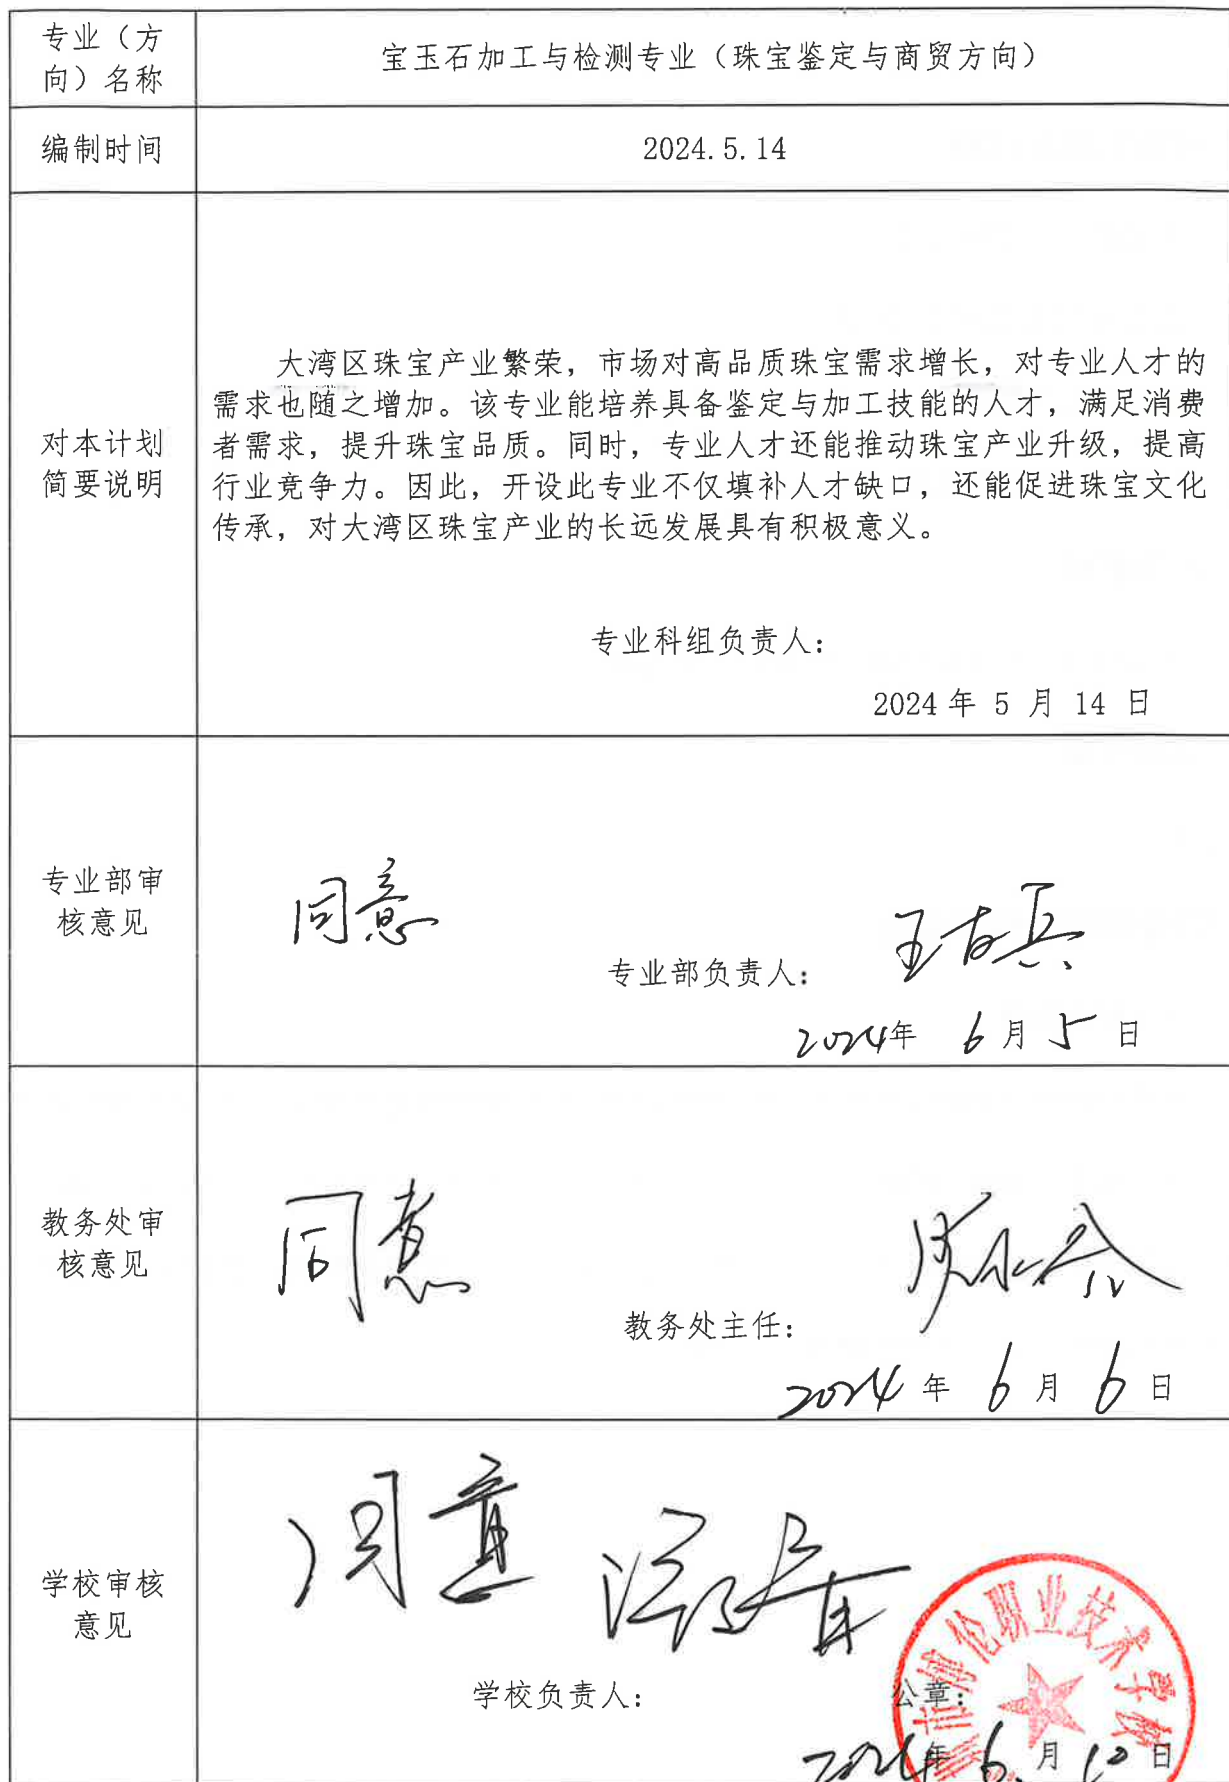 专业（方
向）名称
宝玉石加工与检测专业（珠宝鉴定与商贸方向）
编制时间
2024.5.14
对本计划
简要说明
大湾区珠宝产业繁荣，市场对高品质珠宝需求增长，对专业人才的
需求也随之增加。该专业能培养具备鉴定与加工技能的人才，满足消费
者需求，提升珠宝品质。同时，专业人才还能推动珠宝产业升级，提高
行业竞争力。因此，开设此专业不仅填补人才缺口，还能促进珠宝文化
传承，对大湾区珠宝产业的长远发展具有积极意义。
专业科组负责人：
2024年 5 月 14 日
专业部审
核意见
同意
专业部负责人：
2024年 6月5日
教务处审
核意见
同意
教务处主任：
2024年 6月6日
学校审核
意见
同意
学校负责人：
公章：
2024年6月12日
伦职业技术学校